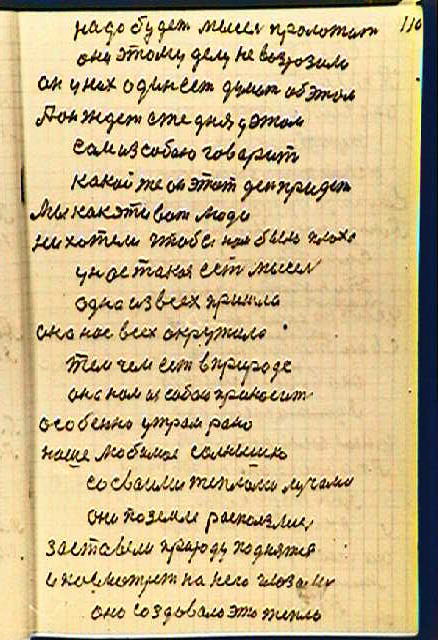 110
надо будет мысея проложит
они этому делу не возрозили
он у них один сет думат об этом
Пон ждет сже дня д этом
сам из собою говарит
какой же он этот ден придет
Мы как эти вот люди
не хотели чтобы нам было плохо
у нос такоя ест мысел
одна из всех пришла
она нос всех окружала
тем чем ест в природе
она нам из собою приносит
особенно утрам рано
наше любимое солнышко
со сваими теплыми лучами
они по земле расползлис
заставели природу поднятся
и посмотрет на него глозами
оно создовало это тепло